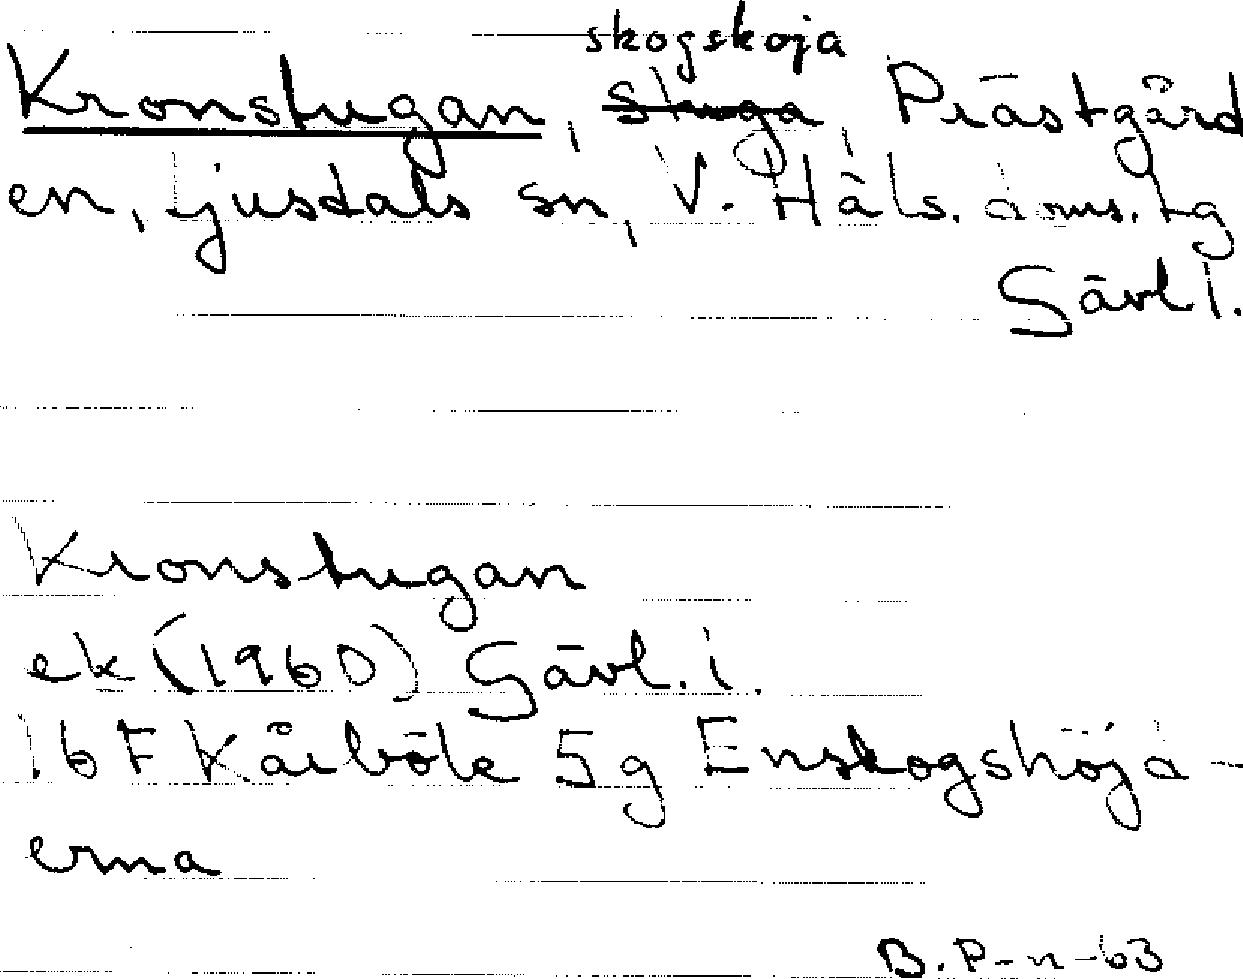 skogskoja
Kronstugan, stuga, Prästgård
en, Ljusdals sn, V. Häls. doms. tg
Gävl l.
Kronstugan
ek (1960) Gävl. l.
16 F Kårböle 5g Enskogshöjd-
erna
B.P-n-63